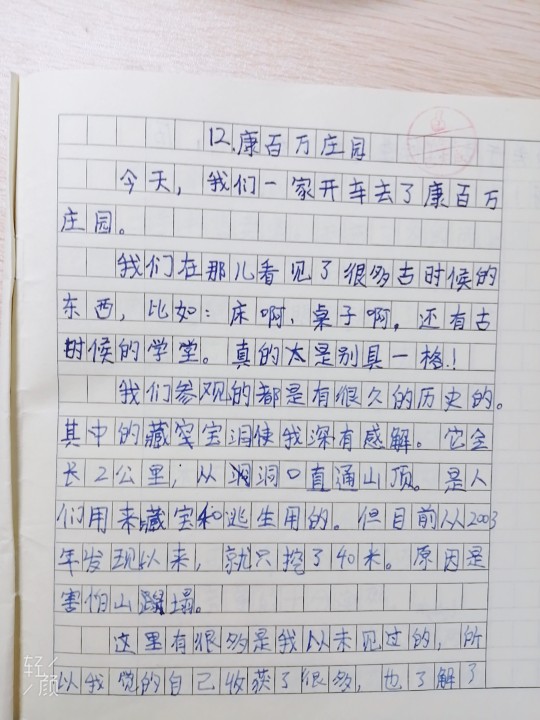 12.康百万庄园
今天，我们一家开车去了康百万
庄园。
我们在那儿看见了很多古时候的
东西，比如：床啊、桌子啊，还有古
时候的学堂。真的太是别具一格！
我们参观的都是有很久的历史的。
其中的藏宝洞使我深有感解。它全
长2公里；从洞口直通山顶。是人
们用来藏宝和逃生用的。但目前从2003
年发现以来，就只挖了40米。原因是
害怕山蹋塌。
这里有很多是我以未见过的，所
以我觉的自己收获了很多，也了解了
轻颜